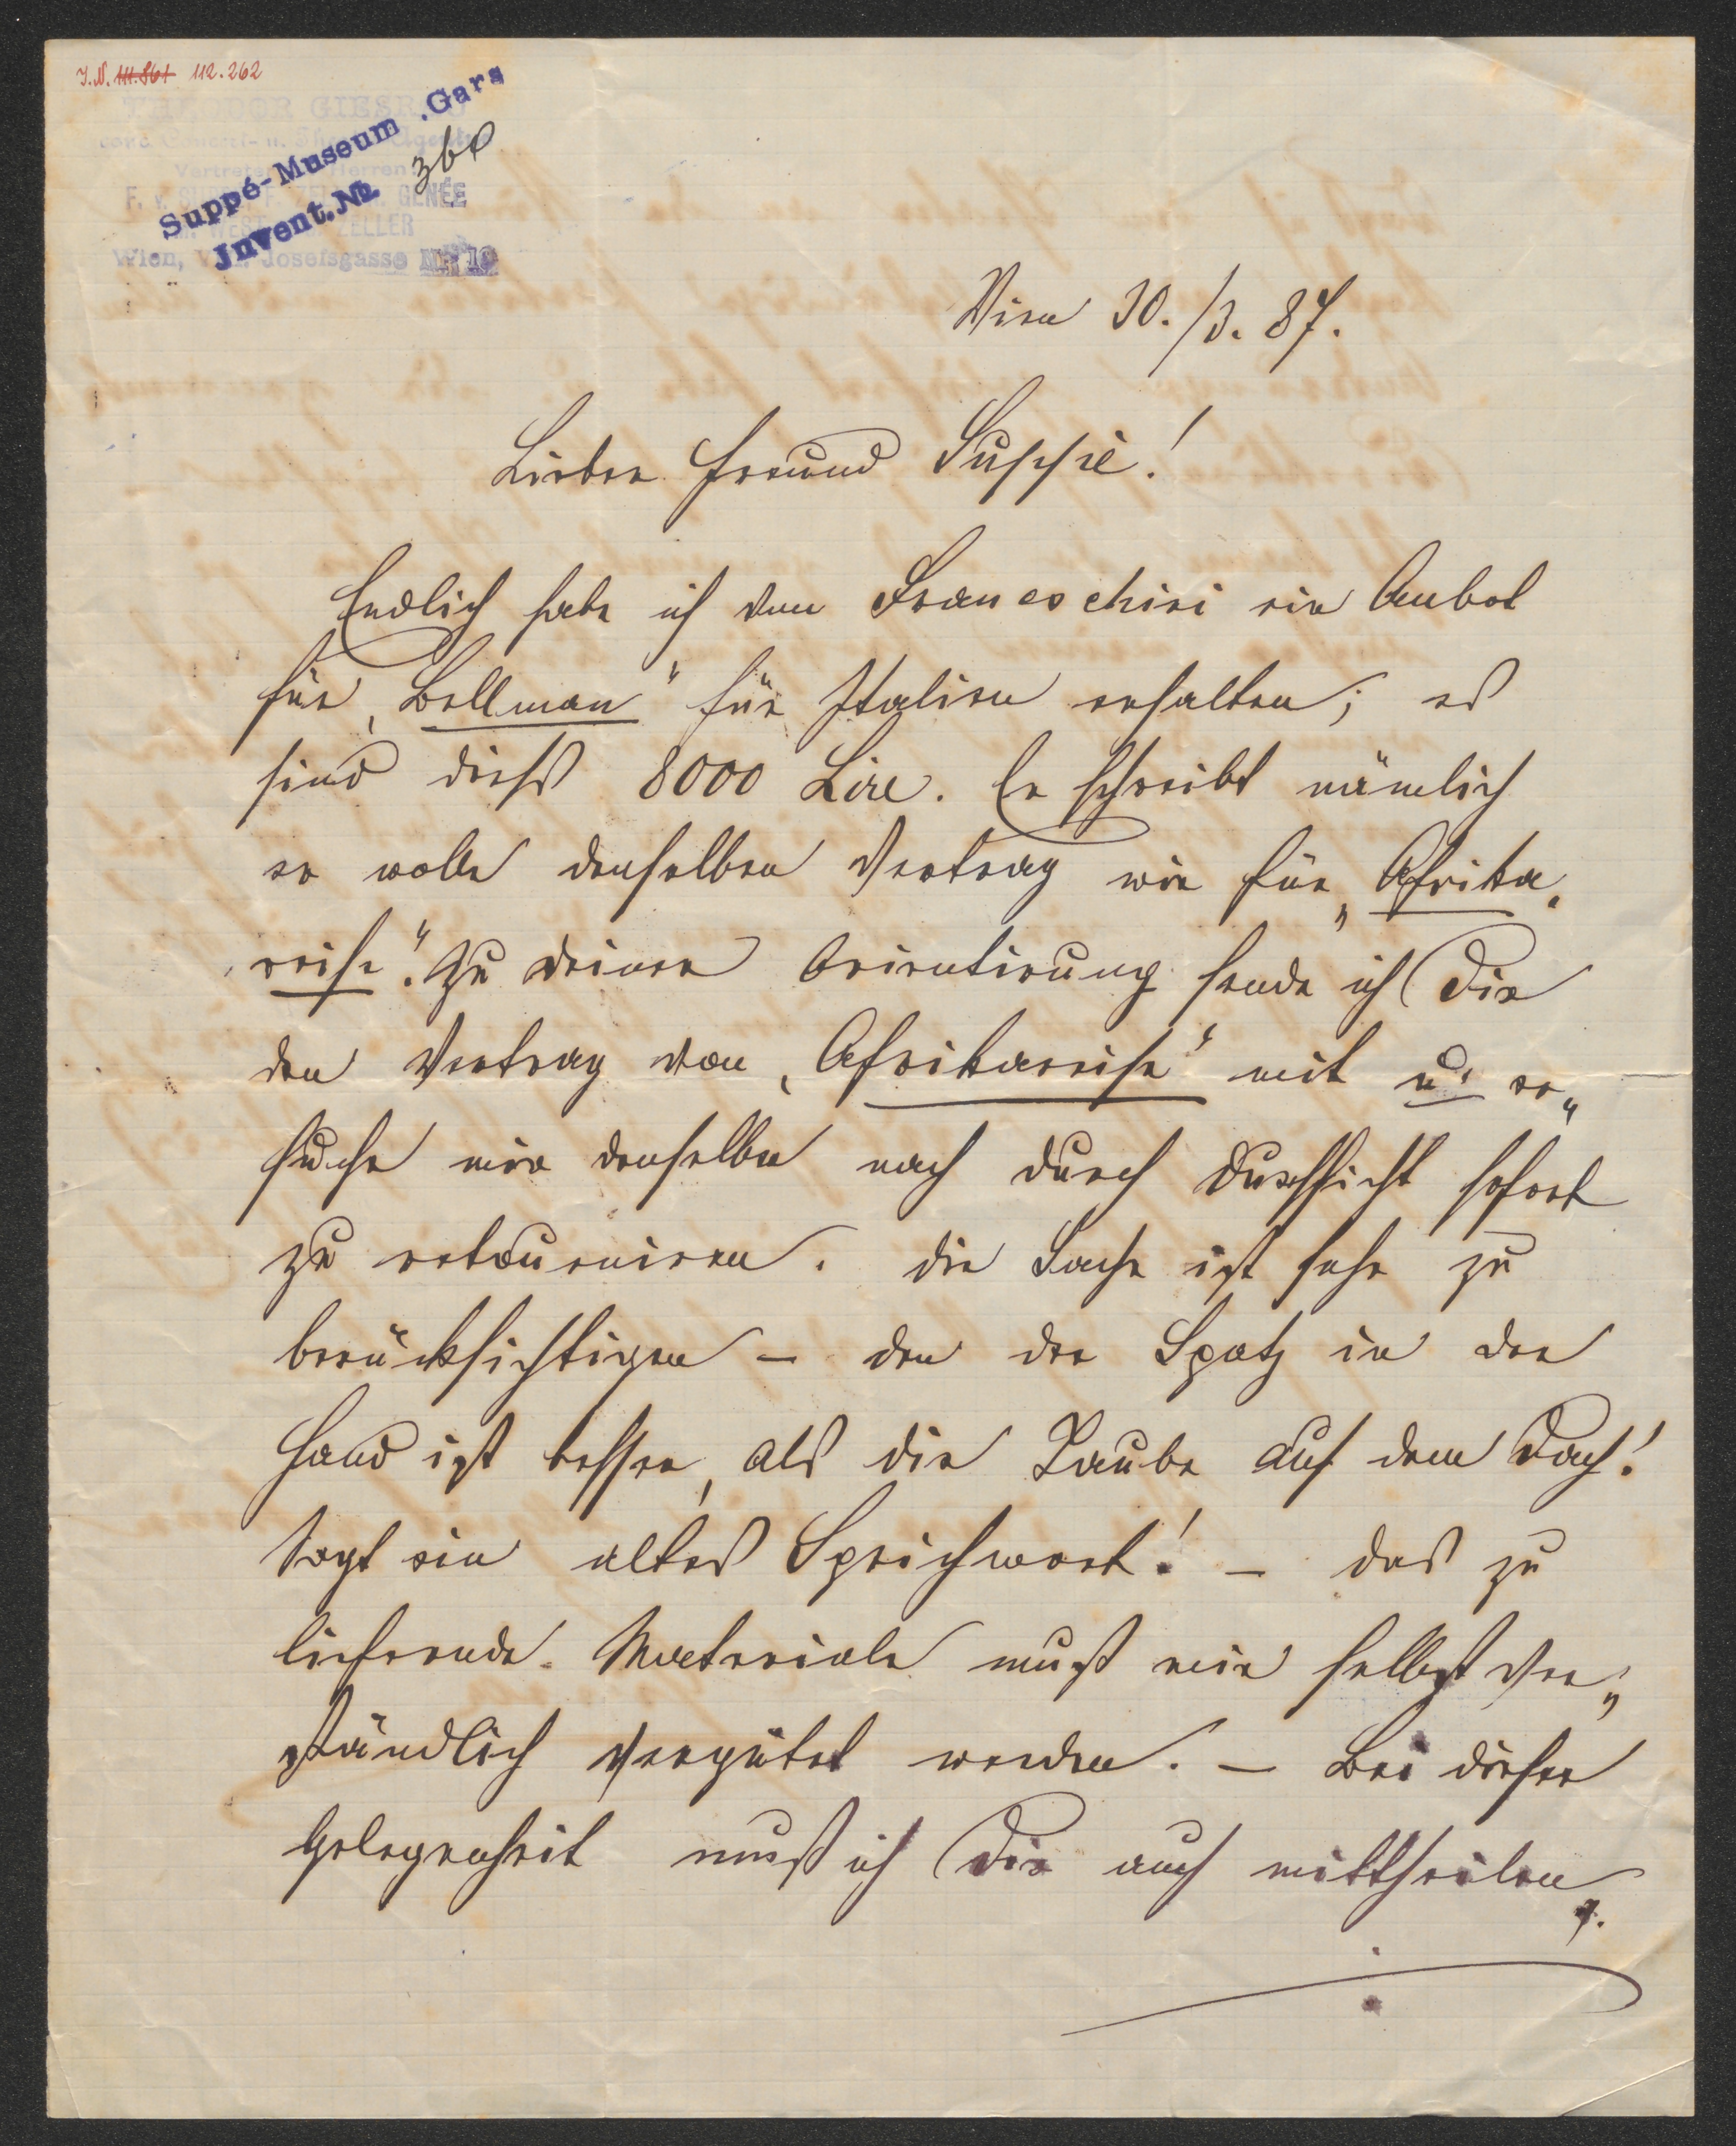 J.N. 111.861 112.262
THEODOR GIESRAU
Concert- u. Theater-Agentur
Vertreter der Herren:
F. v. SUPPÉ, F. ZELL, R. GENÉE
M. WEST, ZELLER
Wien, VIII. Josefsgasse Nr. 10
Suppé-Museum. Gars
Invent. No. 360
Wien 30./3. 87.
Lieber Freund Suppé!
Endlich habe ich von Franceschini ein Anbot
für „Bellman" für Italien erhalten; es
sind dieß 8000 Lire. Er schreibt nämlich
er wolle denselben Vertrag wie für „Afrika„
reise". Zu Deiner Orientirung sende ich Dir
den Vertrag von „Afrikareise" mit u. er„
suche mir denselben nach durch Durchsicht sofort
zu retourniren. Die Sache ist sehr zu
berücksichtigen – den der Spatz in der
Hand ist besser, als die Taube auf dem Dach!
sagt ein altes Sprichwort! – Das zu
liefernde Materiale muß mir selbst ver„
ständlich vergütet werden. – Bei dieser
Gelegenheit muß ich Dir auch mittheilen